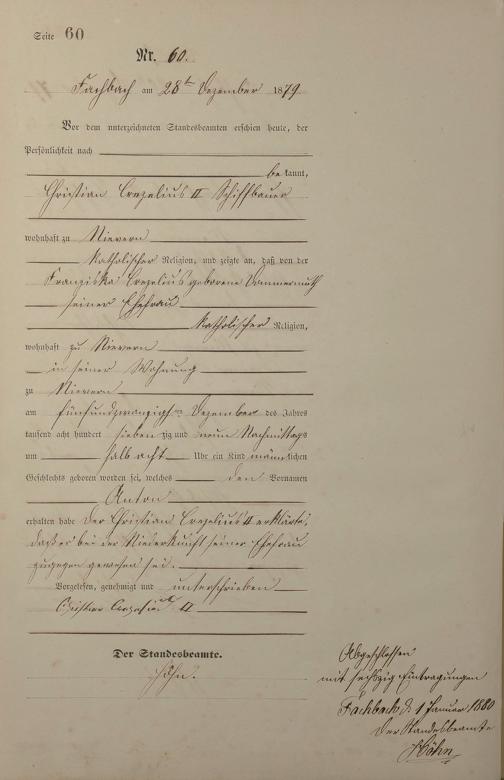 Seite 60
Nr. 60.
Fachbach am 28t Dezember 1879
Vor dem unterzeichneten Standesbeamten erschien heute, der
Persönlichkeit nach
bekannt,
Christian Crezelius II Schiffbauer
wohnhaft zu Nievern
katholischer Religion, und zeigte an, daß von der
Franziska Crezelius geborene
seiner Ehefrau
katholischer Religion,
wohnhaft zu Nievern
in seiner Wohnung
zu Nievern
am fünfundzwanzigsten Dezember des Jahres
tausend acht hundert siebenzig und neun Nachmittags
um halb acht Uhr ein Kind männlichen
Geschlechts geboren worden sei, welches den Vornamen
Anton
erhalten habe Der Christian Crezelius II erklärte,
daß er bei der Niederkunft seiner Ehefrau
zugegen gewesen sei.
Vorgelesen, genehmigt und unterschrieben
Christian Crezelius II
Der Standesbeamte.
Höhn.
Abgeschlossen
mit sechszig Eintragungen
Fachbach, d. 1 Januar 1880
Der Standesbeamte
Höhn